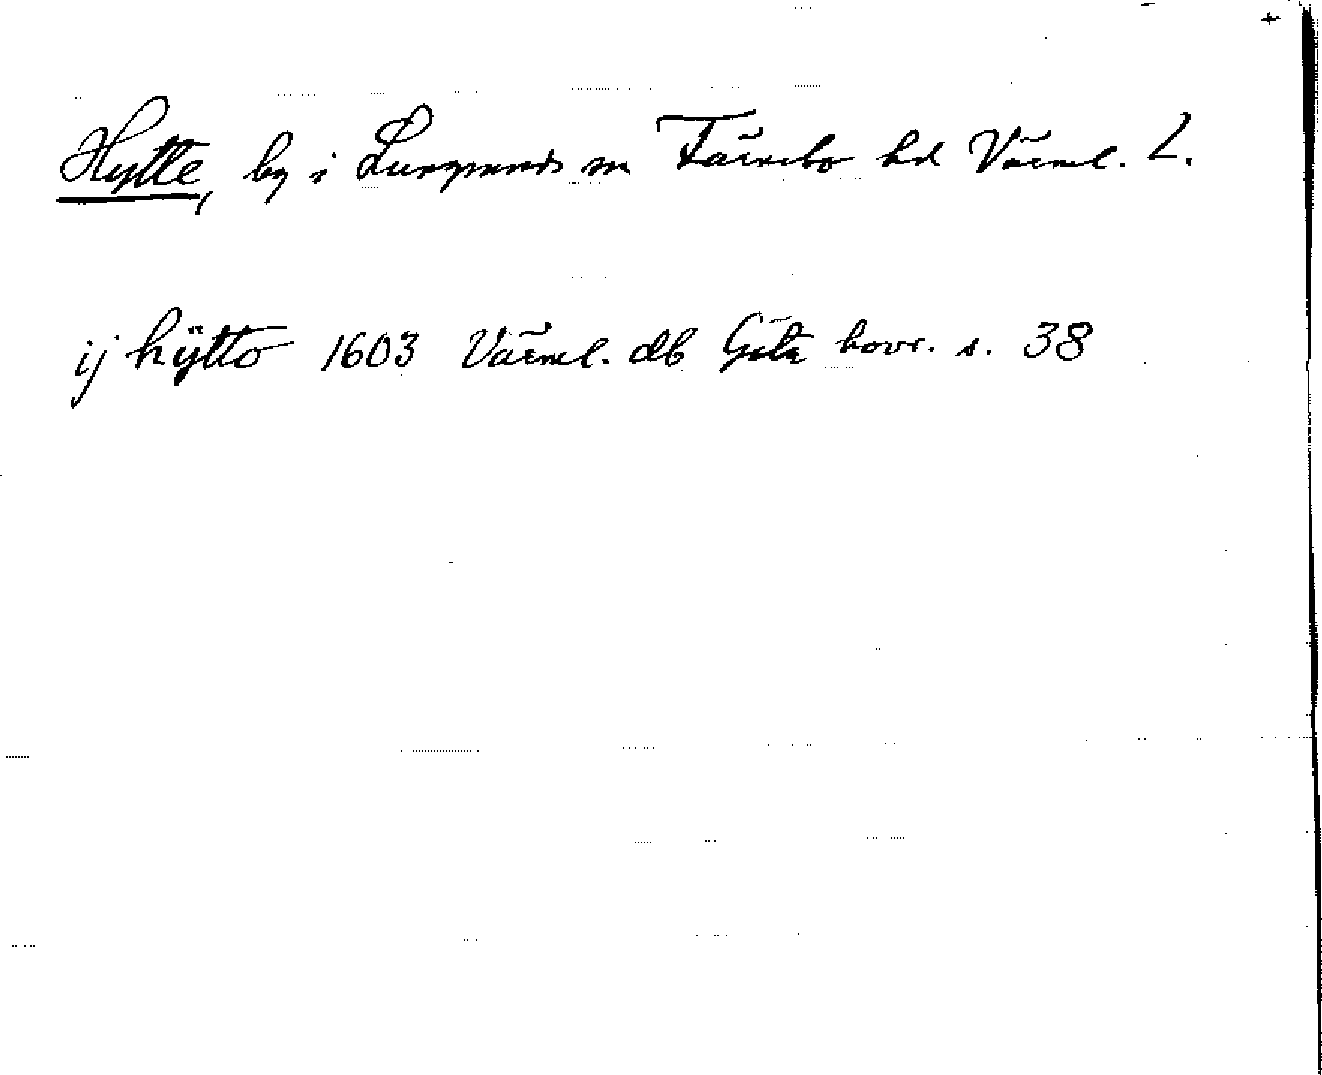 Hytte, by i Lungsunds sn Färnebo hd Värml. L.
ij hÿtto 1603 Värml. db Göta hovr. s. 38